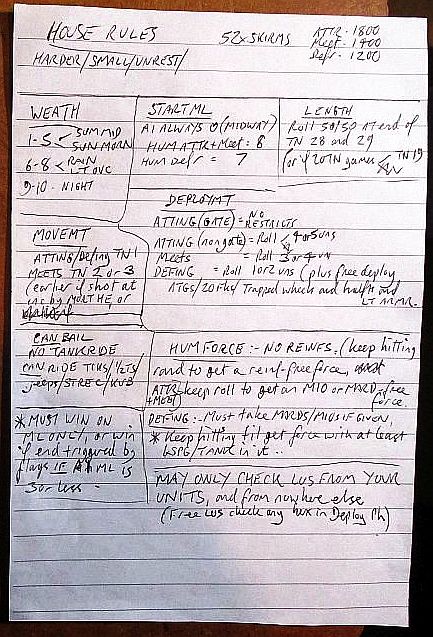 HOUSE RULES
52x SKIRMS
ATTR - 1800
Meet - 1400
Defr - 1200
HARDER/SMALL/UNREST/
WEATH
1-5 < SUM MID
SUN MORN
6-8 < RAIN
LT OVC
9-10 - NIGHT
START ML
AI ALWAYS 0 (MIDWAY)
HUM ATTR + Meet: 8
HUM Defr = 7
LENGTH
Roll 50/50 at end of
TN 28 and 29
(or if 20TN games < TN 19
DEPLOYMT
ATTING (GATE) = NO
RESTRICTS
ATTING (non gate) = Roll 4 or 5 UNS
Meets = Roll 3 or 4 UN
DEFING = Roll 1 or 2 uns (plus free deploy
ATGS/20FKs/Trapped whicls and halftk and
LT ARMR.
MOVEMT
ATTING/Defing TN 1
MEETS TN 2 or 3
(earlier if shot at
CAN BAIL
NO TANKRIDE
CAN RIDE TRKS/½TS/
jeeps/STREC/KUB
HUM FORCE :- NO REINFS. (keep hitting
rand to get a reinf-free force,
ATTR + MEET) keep roll to get an MIO or MXRD-free
force.
DEFING :- Must take MXRDS/MIOS if GIVEN,
* Keep hitting til get force with at least
1 SPG/TANK in it..
* MUST WIN ON
ML ONLY, or win
if end triggered by
flags IF AI ML is
3 or less
MAY ONLY CHECK LOS FROM YOUR
UNITS, and from nowhere else
(Free LOS check any hex in Deploy Ph)